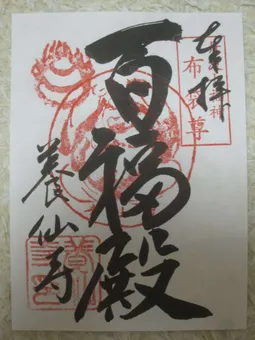 奉拝
布袋尊
百福殿
養仙寺